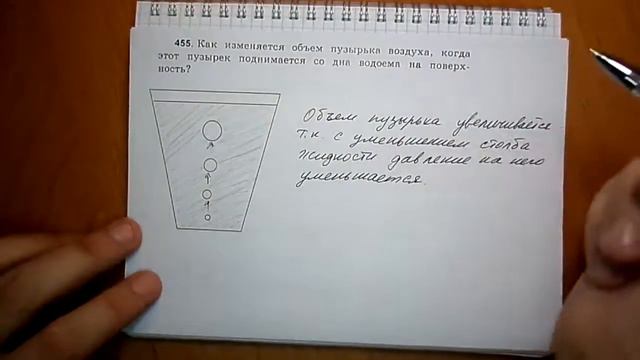 455. Как изменяется объем пузырька воздуха, когда
этот пузырек поднимается со дна водоема на поверх-
ность?
Объем пузырька увеличивается
т.к. с уменьшением столба
жидкости давление на него
уменьшается.